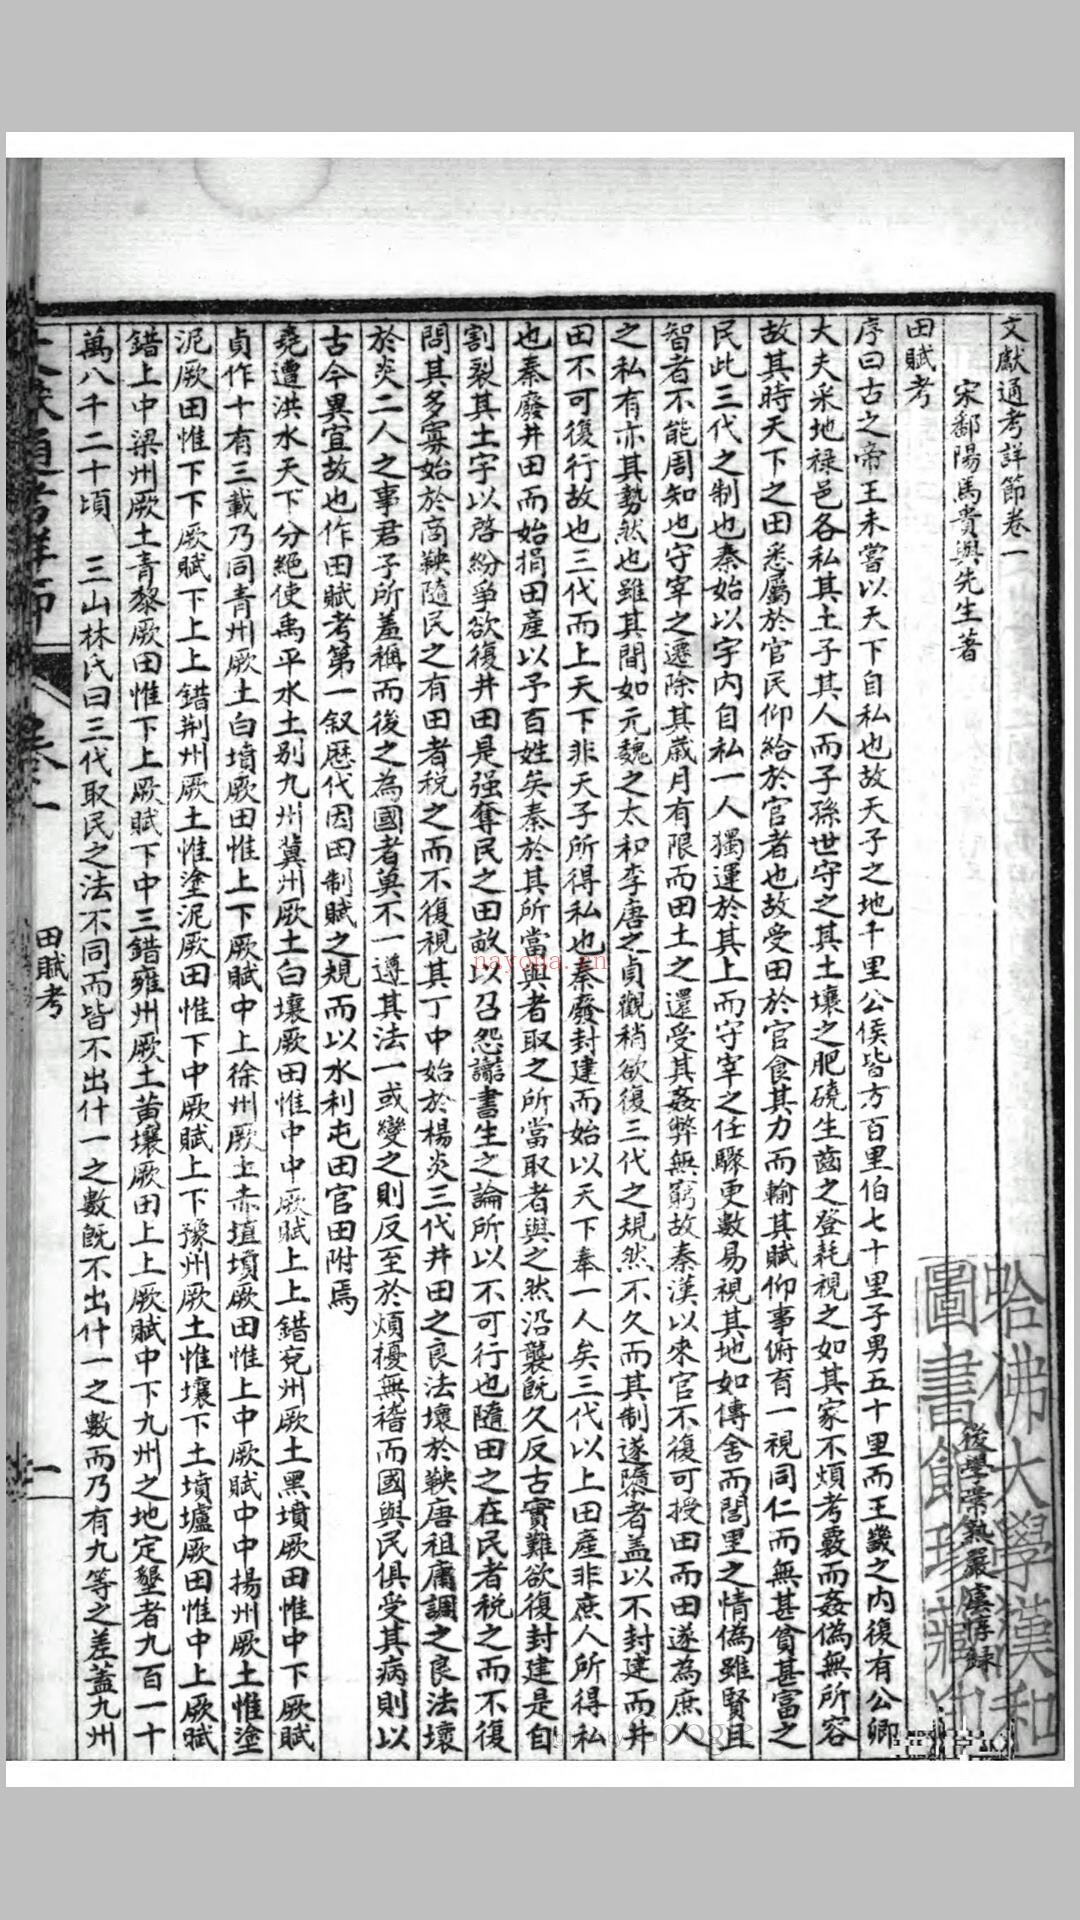 文獻通考詳節卷一
宋鄱陽馬貴與先生著
後學常熟嚴虞惇錄
田賦考
序曰古之帝王未嘗以天下自私也故天子之地千里公侯皆方百里伯七十里子男五十里而王畿之內復有公卿
大夫采地祿邑各私其土子其人而子孫世守之其土壤之肥磽生齒之登耗視之如其家不煩考覈而姦偽無所容
故其時天下之田悉屬於官民仰給於官者也故受田於官食其力而輸其賦仰事俯育一視同仁而無甚貧甚富之
民此三代之制也秦始以宇內自私一人獨運於其上而守宰之任驟更數易視其地如傳舍而閭里之情偽雖賢且
智者不能周知也守宰之遷除其歲月有限而田土之還受其姦弊無窮故秦漢以來官不復可授田而田遂為庶人
之私有亦其勢然也雖其間如元魏之太和李唐之貞觀稍欲復三代之規然不久而其制遂隳者蓋以不封建而井
田不可復行故也三代而上天下非天子所得私也秦廢封建而始以天下奉一人矣三代以上田產非庶人所得私
也秦廢井田而始捐田產以予百姓矣秦於其所當與者取之所當取者與之然沿襲既久反古實難欲復封建是自
割裂其土宇以啓紛爭欲復井田是强奪民之田畝以召怨讟書生之論所以不可行也隨田之在民者稅之而不復
問其多寡始於商鞅隨民之有田者稅之而不復視其丁中始於楊炎三代井田之良法壞於鞅唐租庸調之良法壞
於炎二人之事君子所羞稱而後之為國者莫不一遵其法一或變之則反至於煩擾無稽而國與民俱受其病則以
古今異宜故也作田賦考第一叙歷代因田制賦之規而以水利屯田官田附焉
堯遭洪水天下分絕使禹平水土别九州冀州厥土白壤厥田惟中中厥賦上上錯兗州厥土黑墳厥田惟中下厥賦
貞作十有三載乃同青州厥土白墳厥田惟上下厥賦中上徐州厥土赤埴墳厥田惟上中厥賦中中揚州厥土惟塗
泥厥田惟下下厥賦下上上錯荆州厥土惟塗泥厥田惟下中厥賦上下豫州厥土惟壤下土墳壚厥田惟中上厥賦
錯上中梁州厥土青黎厥田惟下上厥賦下中三錯雍州厥土黄壤厥田上上厥賦中下九州之地定墾者九百一十
萬八千二十頃　三山林氏曰三代取民之法不同而皆不出什一之數既不出什一之數而乃有九等之差蓋九州
文獻通考詳節
卷一
田賦考
一
哈佛大學漢和
圖書館珍藏印
nayona.cn
Digitized by Google